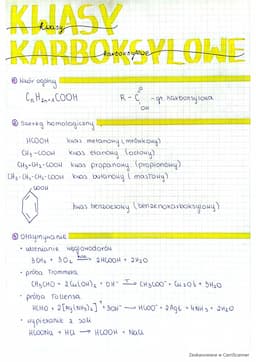 KWASY
kwasy
KARBOKSYLOWE
karboksylowe
① Wzór ogólny
CnH2n+1COOH R-C O OH -gr. karboksylowa
② Szereg homologiczny
HCOOH kwas metanowy (mrówkowy)
CH3-COOH kwas etanowy (octowy)
CH3-CH2-COOH kwas propanowy (propionowy)
CH3-CH2-CH2-COOH kwas butanowy (masłowy)
COOH
kwas benzoesowy (benzenokarboksylowy)
③ Otrzymywanie
• utlenianie węglowodorów
• próba Trommera
CH3CHO + 2Cu(OH)2 + OH⁻ T→ CH3COO⁻ + Cu2O↓ + 3H2O
• próba Tollensa
HCHO + 2[Ag(NH3)2]⁺ + 3OH⁻ → HCOO⁻ + 2Ag↓ + 4NH3 + 2H2O
• wypieranie z soli
HCOONa + HCl → HCOOH + NaCl
Zeskanowane w CamScanner